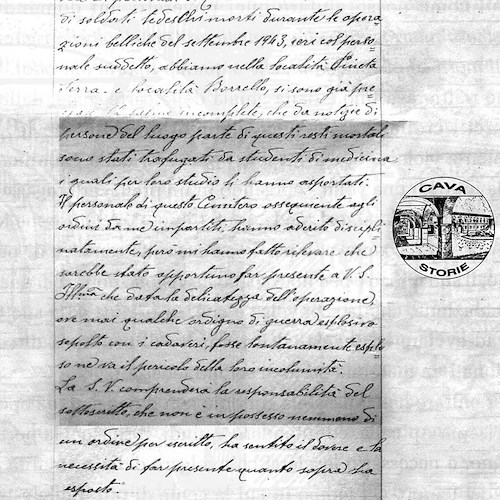 di soldati tedeschi morti durante le opera
zioni belliche del settembre 1943, ieri col perso=
nale suddetto, abbiamo nella località Pineta
Serra e località Borrello, si sono già pre=
incomplete, che da notizie di
persone del luogo parte di questi resti mortali
sono stati trafugati da studenti di medicina
i quali per loro studio li hanno asportati.
Il personale di questo Cimitero ossequiente agli
ordini da me impartiti, hanno aderito discipli
natamente, però mi hanno fatto rilevare che
sarebbe stato opportuno far presente a V. S.
Ill/ma che data la delicatezza dell'operazione,
ove mai qualche ordigno di guerra esplosivo
sepolto con i cadaveri, fosse lontanamente esplo=
so ne va il pericolo della loro incolumità.
La S.V. comprenderà la responsabilità del
sottoscritto, che non è in possesso nemmeno di
un ordine per iscritto, ha sentito il dovere e la
necessità di far presente quanto sopra ha
esposto.
CAVA
STORIE